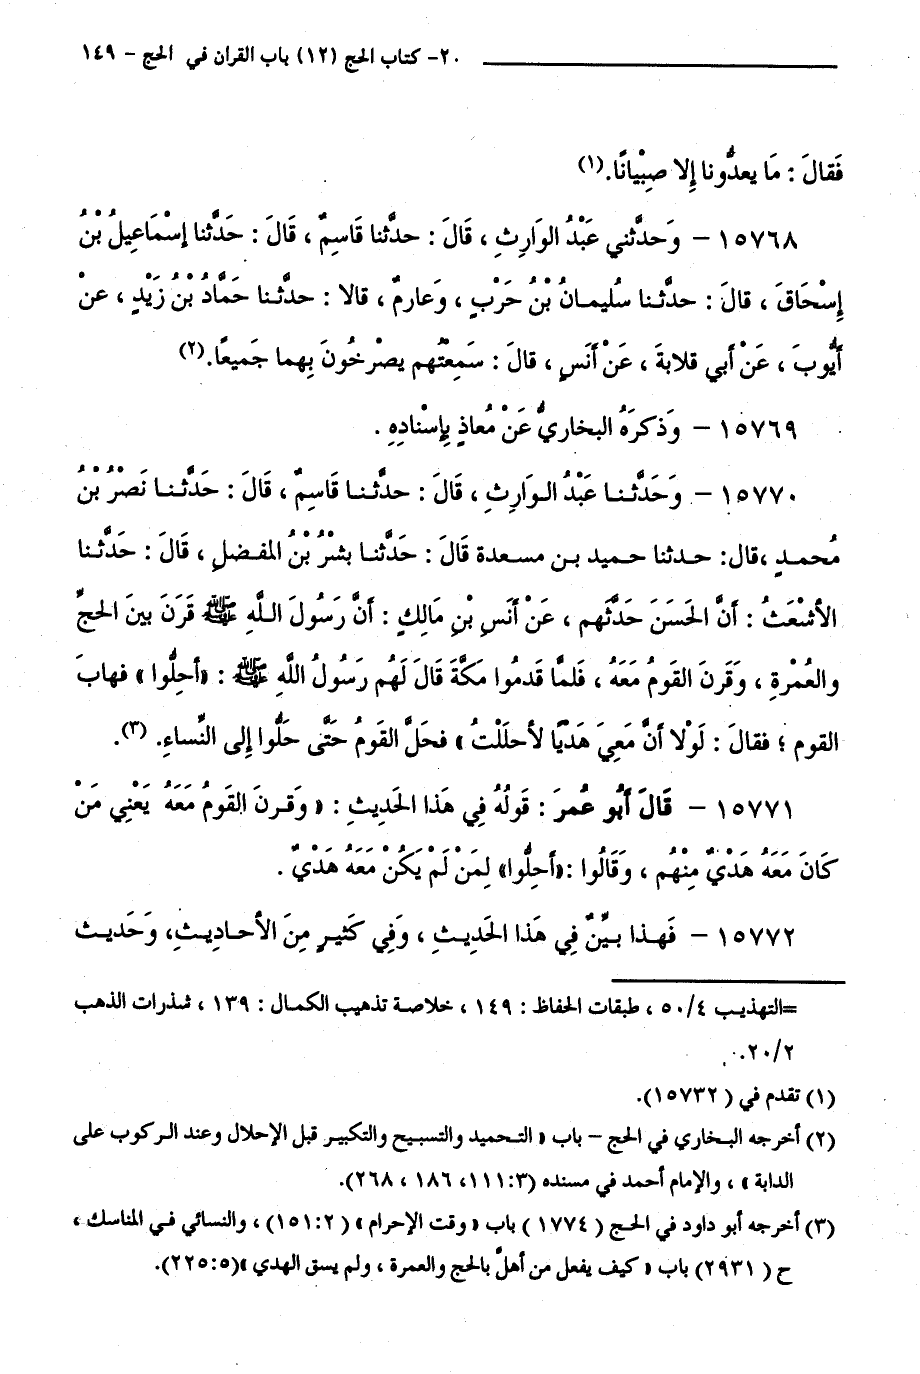 ٢٠- كتاب الحج (١٢) باب القران في الحج - ١٤٩
فَقالَ : مَا يعدُّونا إِلا صِبْيانًا.(١)
١٥٧٦٨ – وَحدثَّني عَبْدُ الوَارِثِ ، قَالَ : حدثَّنا قَاسِمٌ ، قَالَ : حَدَّثنا إسْمَاعِيلُ بْنُ
إِسْحَاقَ ، قالَ : حدثَّـنا سُليمـانُ بْنُ حَرْبٍ ، وَعارمٌ ، قالا : حدثَّـنا حَمَّادُ بْنُ زَيْدٍ ، عنْ
أَيُّوبَ ، عَنْ أَبي قلابةَ ، عَنْ أَنَسٍ ، قالَ : سَمِعْتُهم يصرْخُونَ بِهما جَميعًا.(٢)
١٥٧٦٩ – وَذكرَهُ البخاريُّ عَنْ مُعاذٍ بِإسْنادِهِ .
١٥٧٧٠ – وَحَدَّثْـنـا عَبْدُ الـوَارِثِ ، قَالَ : حدثَّـنـا قَاسِمٌ ، قَالَ : حَدَّثْـنـا نَصْرُ بْنُ
مُحمـدٍ ،قال: حـدثنا حمـيد بـن مسـعدة قَالَ : حَدَّثنا بشْرُ بْنُ المفـضلِ ، قَالَ : حَدَّثْـنا
الأَشْعَثُ : أَنَّ الحَسَنَ حَدَّثَهم ، عَنْ أَنَسِ بْنِ مَالِكٍ : أَنَّ رَسُولَ الـلَّهِ ﷺ قَرَنَ بينَ الحجِّ
والعُمْرةِ ، وَقَرنَ القَومُ مَعَهُ ، فَلمَّا قَدمُوا مَكَّةَ قَالَ لَهُم رَسُولُ اللَّهِ ﷺ : «أحِلُّوا » فهابَ
القوم ؛ فقالَ : لَوْلا أنَّ مَعِيَ هَدْيًا لأحلَلْتُ » فحَلَّ القَومُ حَتَّى حَلُّوا إلى النِّساءِ. (٣).
١٥٧٧١ – قَالَ أَبُو عُمرَ : قَولُهُ فِي هَذا الحَديثِ : « وَقـرنَ القَومُ مَعَهُ يَعْنِي مَنْ
كَانَ مَعَهُ هَدْيٌ مِنْهُم ، وَقَالُوا :«أَحِلُّوا» لِمَنْ لَمْ يَكُنْ مَعَهُ هَدْيٌ .
١٥٧٧٢ – فَهـذا بـيِّنٌ فِي هَذا الحَديـثِ ، وَفِي كَثيـرٍ مِنَ الأَحـاديـثِ، وَحَديـث
=التهذيب ٥٠/٤ ، طبقات الحفاظ : ١٤٩ ، خلاصة تذهيب الكمال : ١٣٩ ، شذرات الذهب
٢٠/٢.
(١) تقدم في ( ١٥٧٣٢).
(٢) أخرجه البخاري في الحج – باب « التحميد والتسبيح والتكبير قبل الإحلال وعند الركوب على
الدابة » ، والإمام أحمد في مسنده (١١١:٣، ١٨٦ ، ٢٦٨).
(٣) أخرجه أبو داود في الحج ( ١٧٧٤ ) باب « وقت الإحرام » (١٥١:٢) ، والنسائي في المناسك ،
ح ( ٢٩٣١) باب « كيف يفعل من أهلَّ بالحج والعمرة ، ولم يسق الهدي »(٢٢٥:٥).